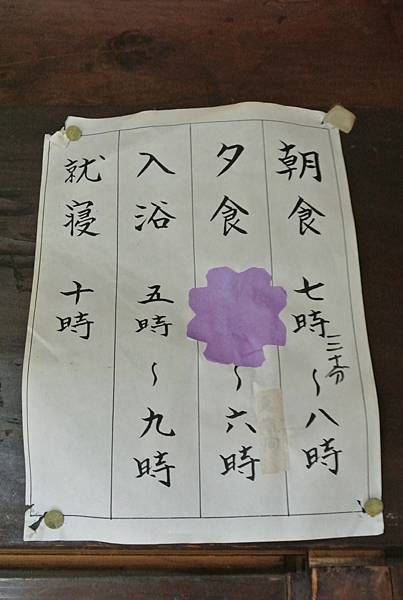 朝食 七時三十分〜八時
夕食 〜六時
入浴 五時〜九時
就寝 十時